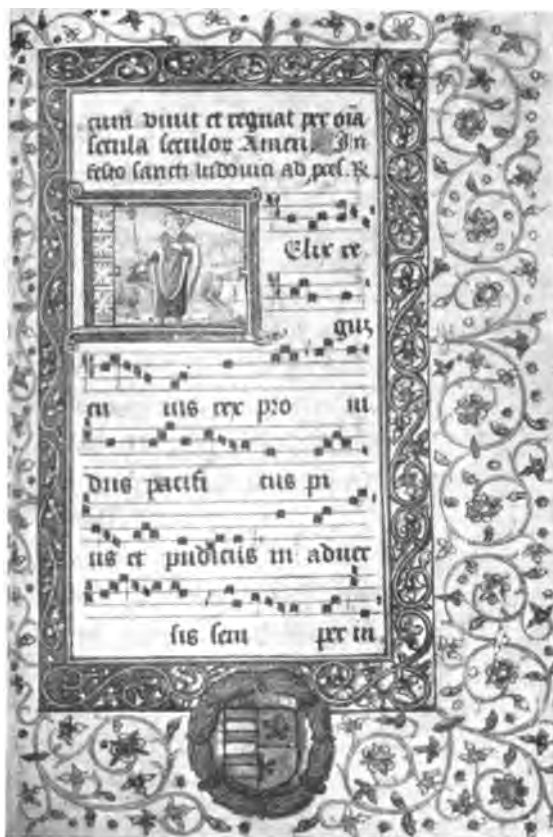 cum viuit et regnat per oīa
secula seculor Amen. In
festo sancti ludouici ad pces. R
Elix re
gnū
cu ius rex pro ui
dus pacifi cus pi
us et pudicus in aduer
sis sem per in